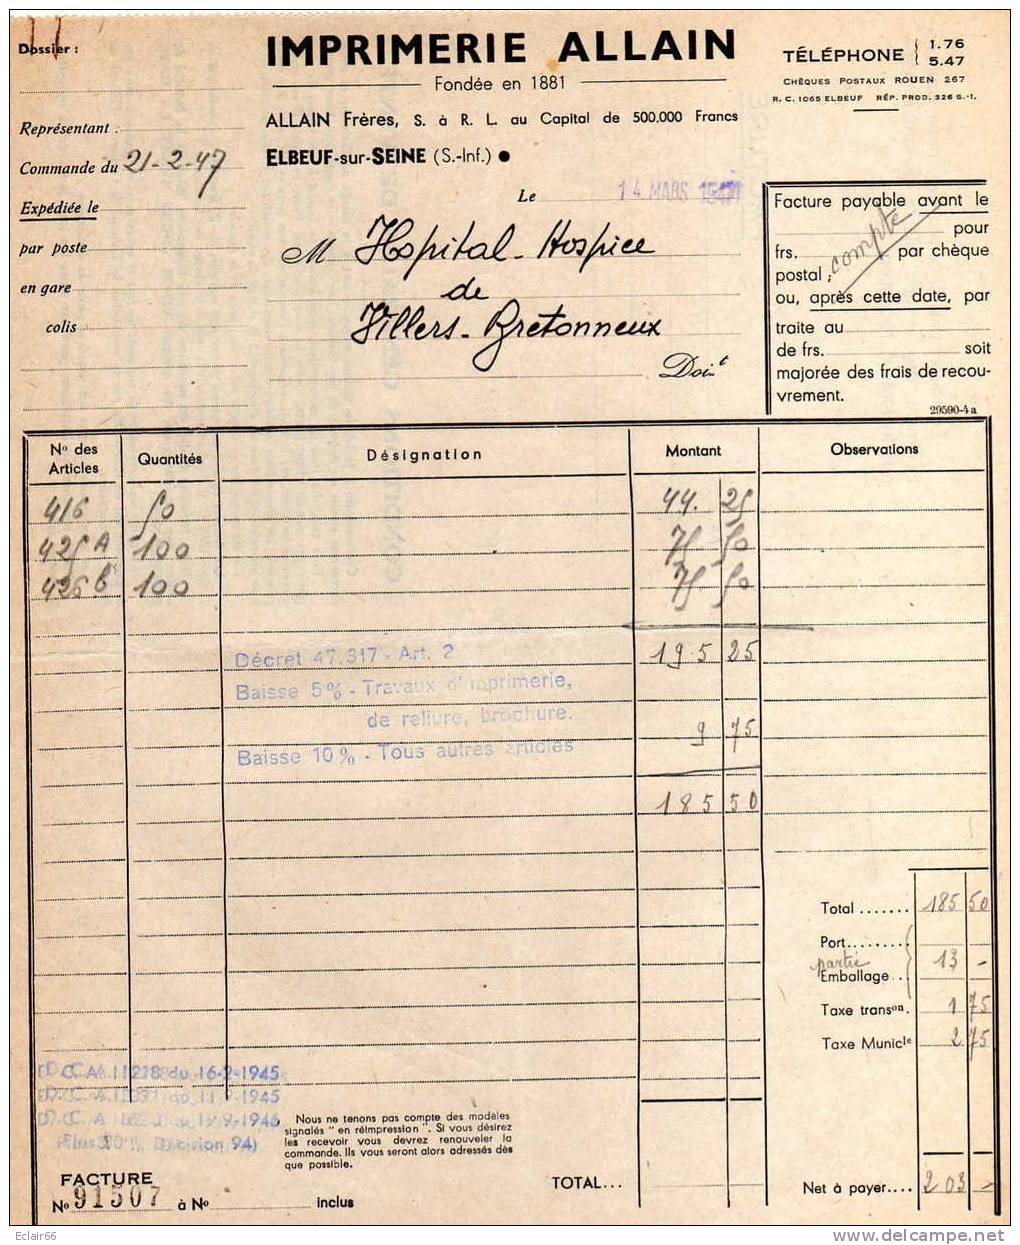 Dossier :
IMPRIMERIE ALLAIN
Fondée en 1881
TÉLÉPHONE { 1.76
5.47
CHÈQUES POSTAUX ROUEN 267
R. C. 1065 ELBEUF RÉP. PROD. 326 S.-I.
ALLAIN Frères, S. à R. L. au Capital de 500.000 Francs
ELBEUF-sur-SEINE (S.-Inf.) ●
Représentant :
Commande du 21-2-47
Expédiée le
par poste
en gare
colis
Le 14 MARS 1947
M Hopital-Hospice
de
Villers-Bretonneux
Doit
Facture payable avant le
pour
frs. par chèque
postal ;
compte
ou, après cette date, par
traite au
de frs. soit
majorée des frais de recou-
vrement.
29590-4a
Nº des Articles Quantités Désignation Montant Observations
416 50 44. 25
425 A 100 75 50
426 B 100 75 50
195 25
Décret 47.317 - Art. 2
Baisse 5% - Travaux d'imprimerie,
de reliure, brochure.
9 75
Baisse 10% - Tous autres articles
185 50
Total ....... 185 50
Port........
partie 13 -
Emballage ..
Taxe transon. 1 75
Taxe Municle 2 75
D. C. A. 11218 du 16-2-1945
1945
D. C. A 19-9-1946
Plus Décision 94)
Nous ne tenons pas compte des modèles
signalés " en réimpression ". Si vous désirez
les recevoir vous devrez renouveler la
commande. Ils vous seront alors adressés dès
que possible.
FACTURE
No 91507 à No inclus
TOTAL...
Net à payer.... 203 -
Eclair66
delcampe.net